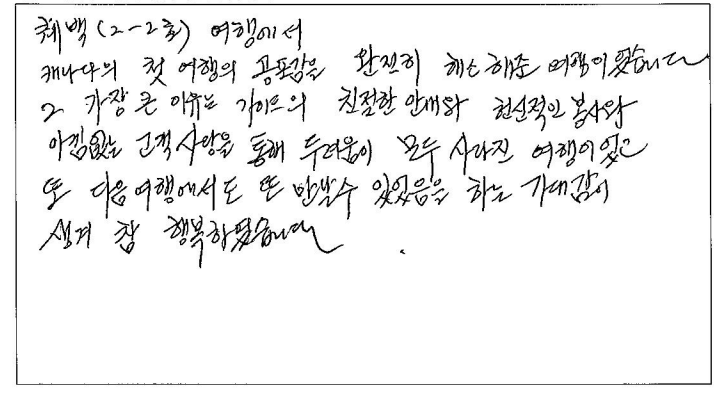 퀘벡 (2-2호) 여행에서
캐나다의 첫 여행의 공포감을 완전히 해소해준 여행이였습니다
그 가장 큰 이유는 가이드의 친절한 안내와 헌신적인 봉사와
아낌없는 고객사랑을 통해 두려움이 모두 사라진 여행이었고
또 다음여행에서도 또 만날수 있었음을 하는 기대감이
생겨 참 행복하였습니다.